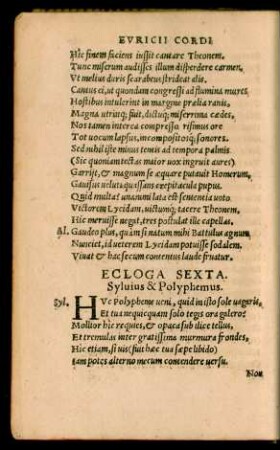 EVRICII CORDI
Hic finem faciens iussit cantare Theonem.
Tunc miserum audisses illum disperdere carmen,
Vt melius duris scarabeus strideat alis.
Cantus ei, ut quondam congressi ad flumina mures
Hostibus intulerint in margine prælia ranis,
Magna utrinq; fuit, dictuq; miserrima cædes,
Nos tamen interea compresso risimus ore
Tot uocum lapsus, incompositosq; sonores.
Sed nihil iste minus tenus ad tempora palmis
(Sic quoniam tectas maior uox ingruit aures)
Garrijt, & magnum se æquare putauit Homerum,
Gauisus uelut quassans crepitacula pupus.
Quid multa? unanimi lata est sententia uoto.
Victorem Lycidam, uictumq; tacere Theonem,
Hic meruisse negat, tres postulat ille capellas.
Bl. Gaudeo plus, quàm si natum mihi Battulus agnum
Nunciet, id ueterem Lycidam potuisse sodalem.
Viuat & hac secum contentus laude fruatur.
ECLOGA SEXTA.
Syluius & Polyphemus.
Syl. HVc Polypheme ueni, quid in isto sole uagaris,
Et tua nequicquam solo tegis ora galero?
Mollior hic requies, & opaca sub ilice tellus,
Et tremulas inter gratissima murmura frondes.
Hic etiam, si uis (fuit hæc tua sæpe libido)
Iam potes alterno mecum contendere uersu.
Non